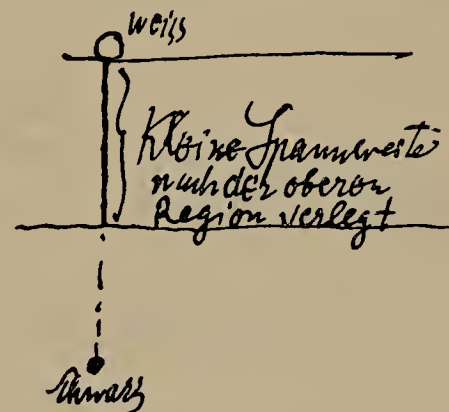 weiss
Kleine Spannweite
nach der oberen
Region verlegt
schwarz